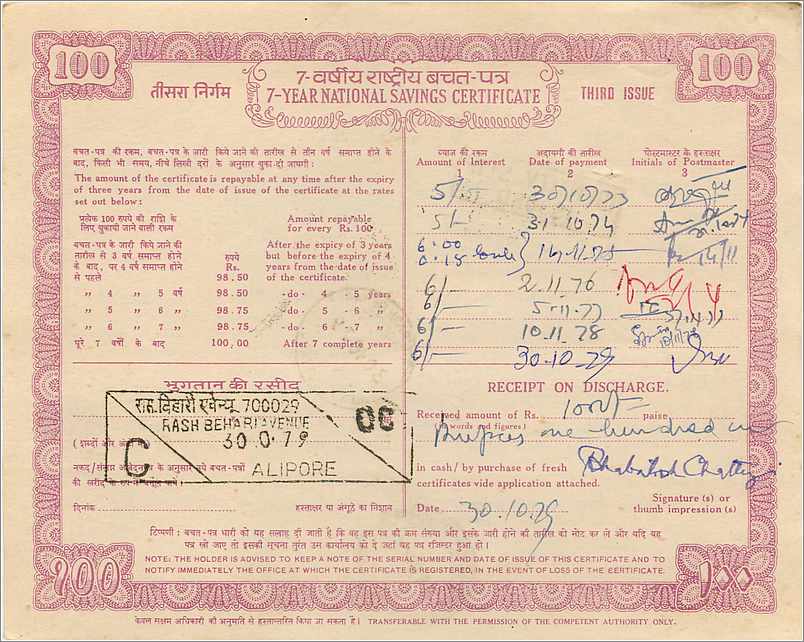 100
100
7-वर्षीय राष्ट्रीय बचत-पत्र
तीसरा निर्गम
7-YEAR NATIONAL SAVINGS CERTIFICATE
THIRD ISSUE
बचत-पत्र की रकम, बचत-पत्र के जारी किये जाने की तारीख से तीन वर्ष समाप्त होने के
बाद, किसी भी समय, नीचे लिखी दरों के अनुसार चुका-दी जाएगी :
The amount of the certificate is repayable at any time after the expiry
of three years from the date of issue of the certificate at the rates
set out below :
प्रत्येक 100 रुपये की राशि के
लिए चुकायी जाने वाली रकम
Amount repayable
for every Rs. 100
बचत-पत्र के जारी किये जाने की
तारीख से 3 वर्ष समाप्त होने
के बाद, पर 4 वर्ष समाप्त होने
से पहले
रुपये
Rs.
98.50
After the expiry of 3 years
but before the expiry of 4
years from the date of issue
of the certificate.
" 4 " 5 वर्ष 98.50 -do- 4 - 5 years
" 5 " 6 " 98.75 -do- 5 - 6 "
" 6 " 7 " 98.75 -do- 6 - 7 "
पूरे 7 वर्षों के बाद 100,00 After 7 complete years
ब्याज की रकम अदायगी की तारीख पोस्टमास्टर के हस्ताक्षर
Amount of Interest Date of payment Initials of Postmaster
1 2 3
5/-
5/- 31.10.74
6.00
0.18
6/- 2.11.76
6/- 5.11.77
6/- 10.11.78
6/- 30.10.79
भुगतान की रसीद
रास विहारी एवेन्यू 700029
RASH BEHARI AVENUE
ALIPORE
C
OC
(शब्दों और
नकद/
के अनुसार नये बचत-पत्रों
की खरीद
दिनांक
हस्ताक्षर या अंगूठे का निशान
RECEIPT ON DISCHARGE.
Received amount of Rs. 100/- paise
(In words and figures)
Rupees one hundred only
In cash/by purchase of fresh
certificates vide application attached.
Bhabatosh Chatterji
Signature (s) or
thumb impression (s)
Date 30.10.79
टिप्पणी : बचत-पत्र धारी को यह सलाह दी जाती है कि वह इस पत्र की क्रम संख्या और इसके जारी होने की तारीख को नोट कर ले और यदि यह
पत्र खो जाए तो इसकी सूचना तुरंत उस कार्यालय को दे जहां यह पत्र रजिस्टर हुआ हो।
NOTE: THE HOLDER IS ADVISED TO KEEP A NOTE OF THE SERIAL NUMBER AND DATE OF ISSUE OF THIS CERTIFICATE AND TO
NOTIFY IMMEDIATELY THE OFFICE AT WHICH THE CERTIFICATE IS REGISTERED, IN THE EVENT OF LOSS OF THE CERTIFICATE.
१००
१००
केवल सक्षम अधिकारी की अनुमति से हस्तान्तरित किया जा सकता है। TRANSFERABLE WITH THE PERMISSION OF THE COMPETENT AUTHORITY ONLY.